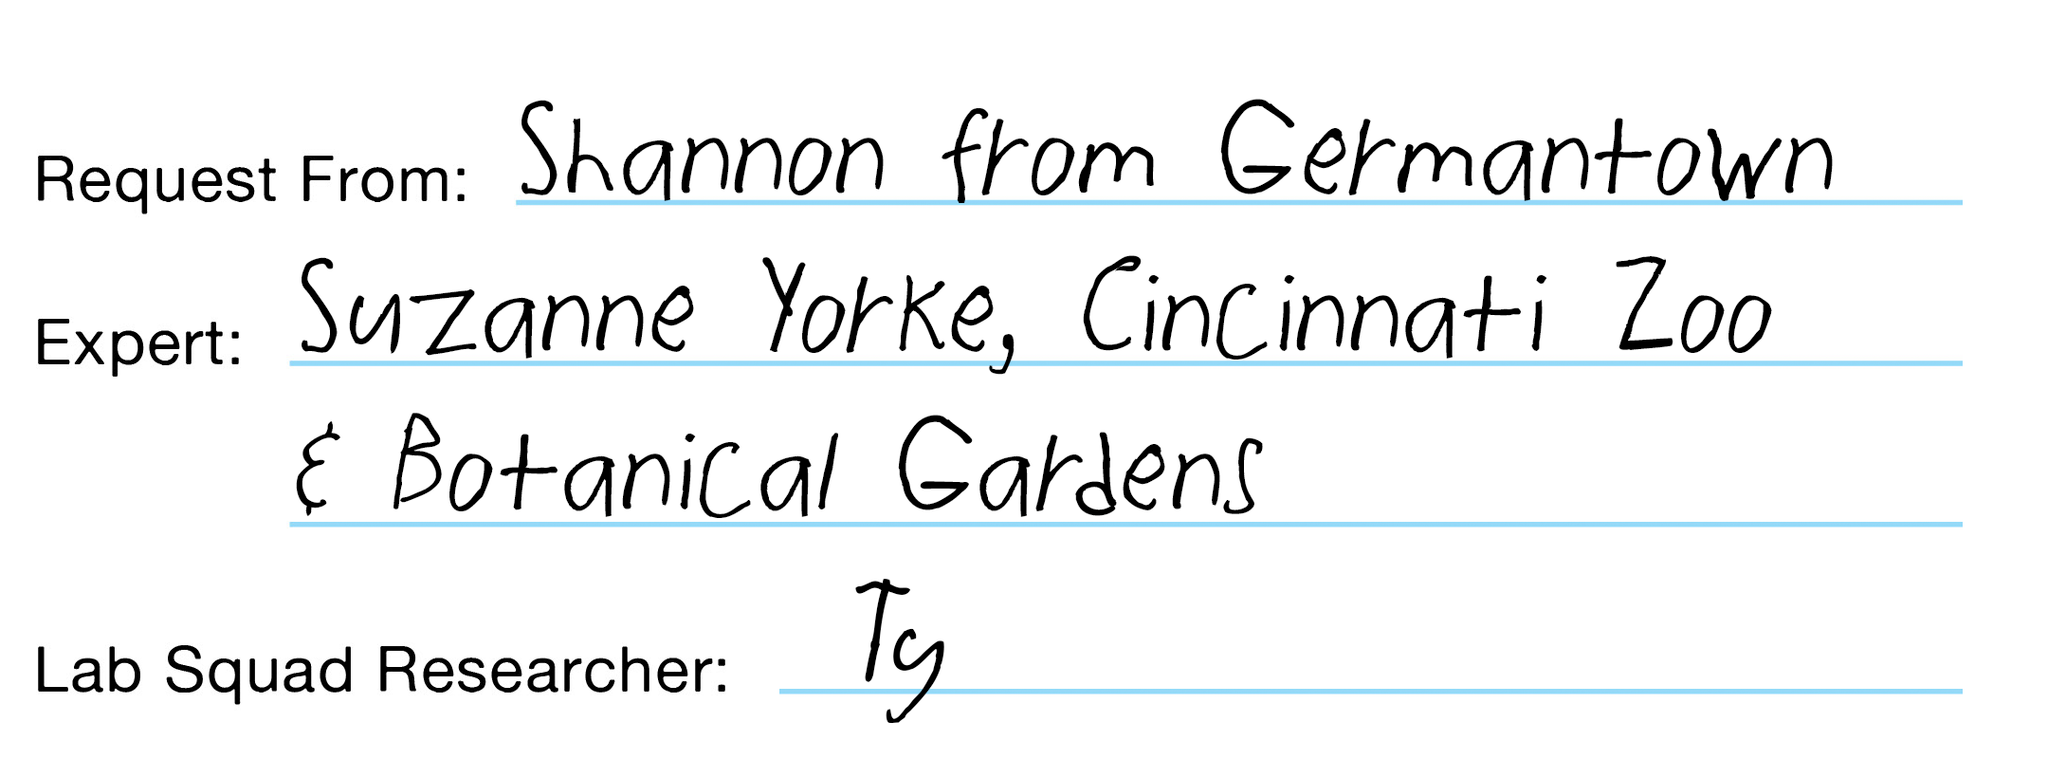 Request From: Shannon from Germantown
Expert: Suzanne Yorke, Cincinnati Zoo
& Botanical Gardens
Lab Squad Researcher: Ty